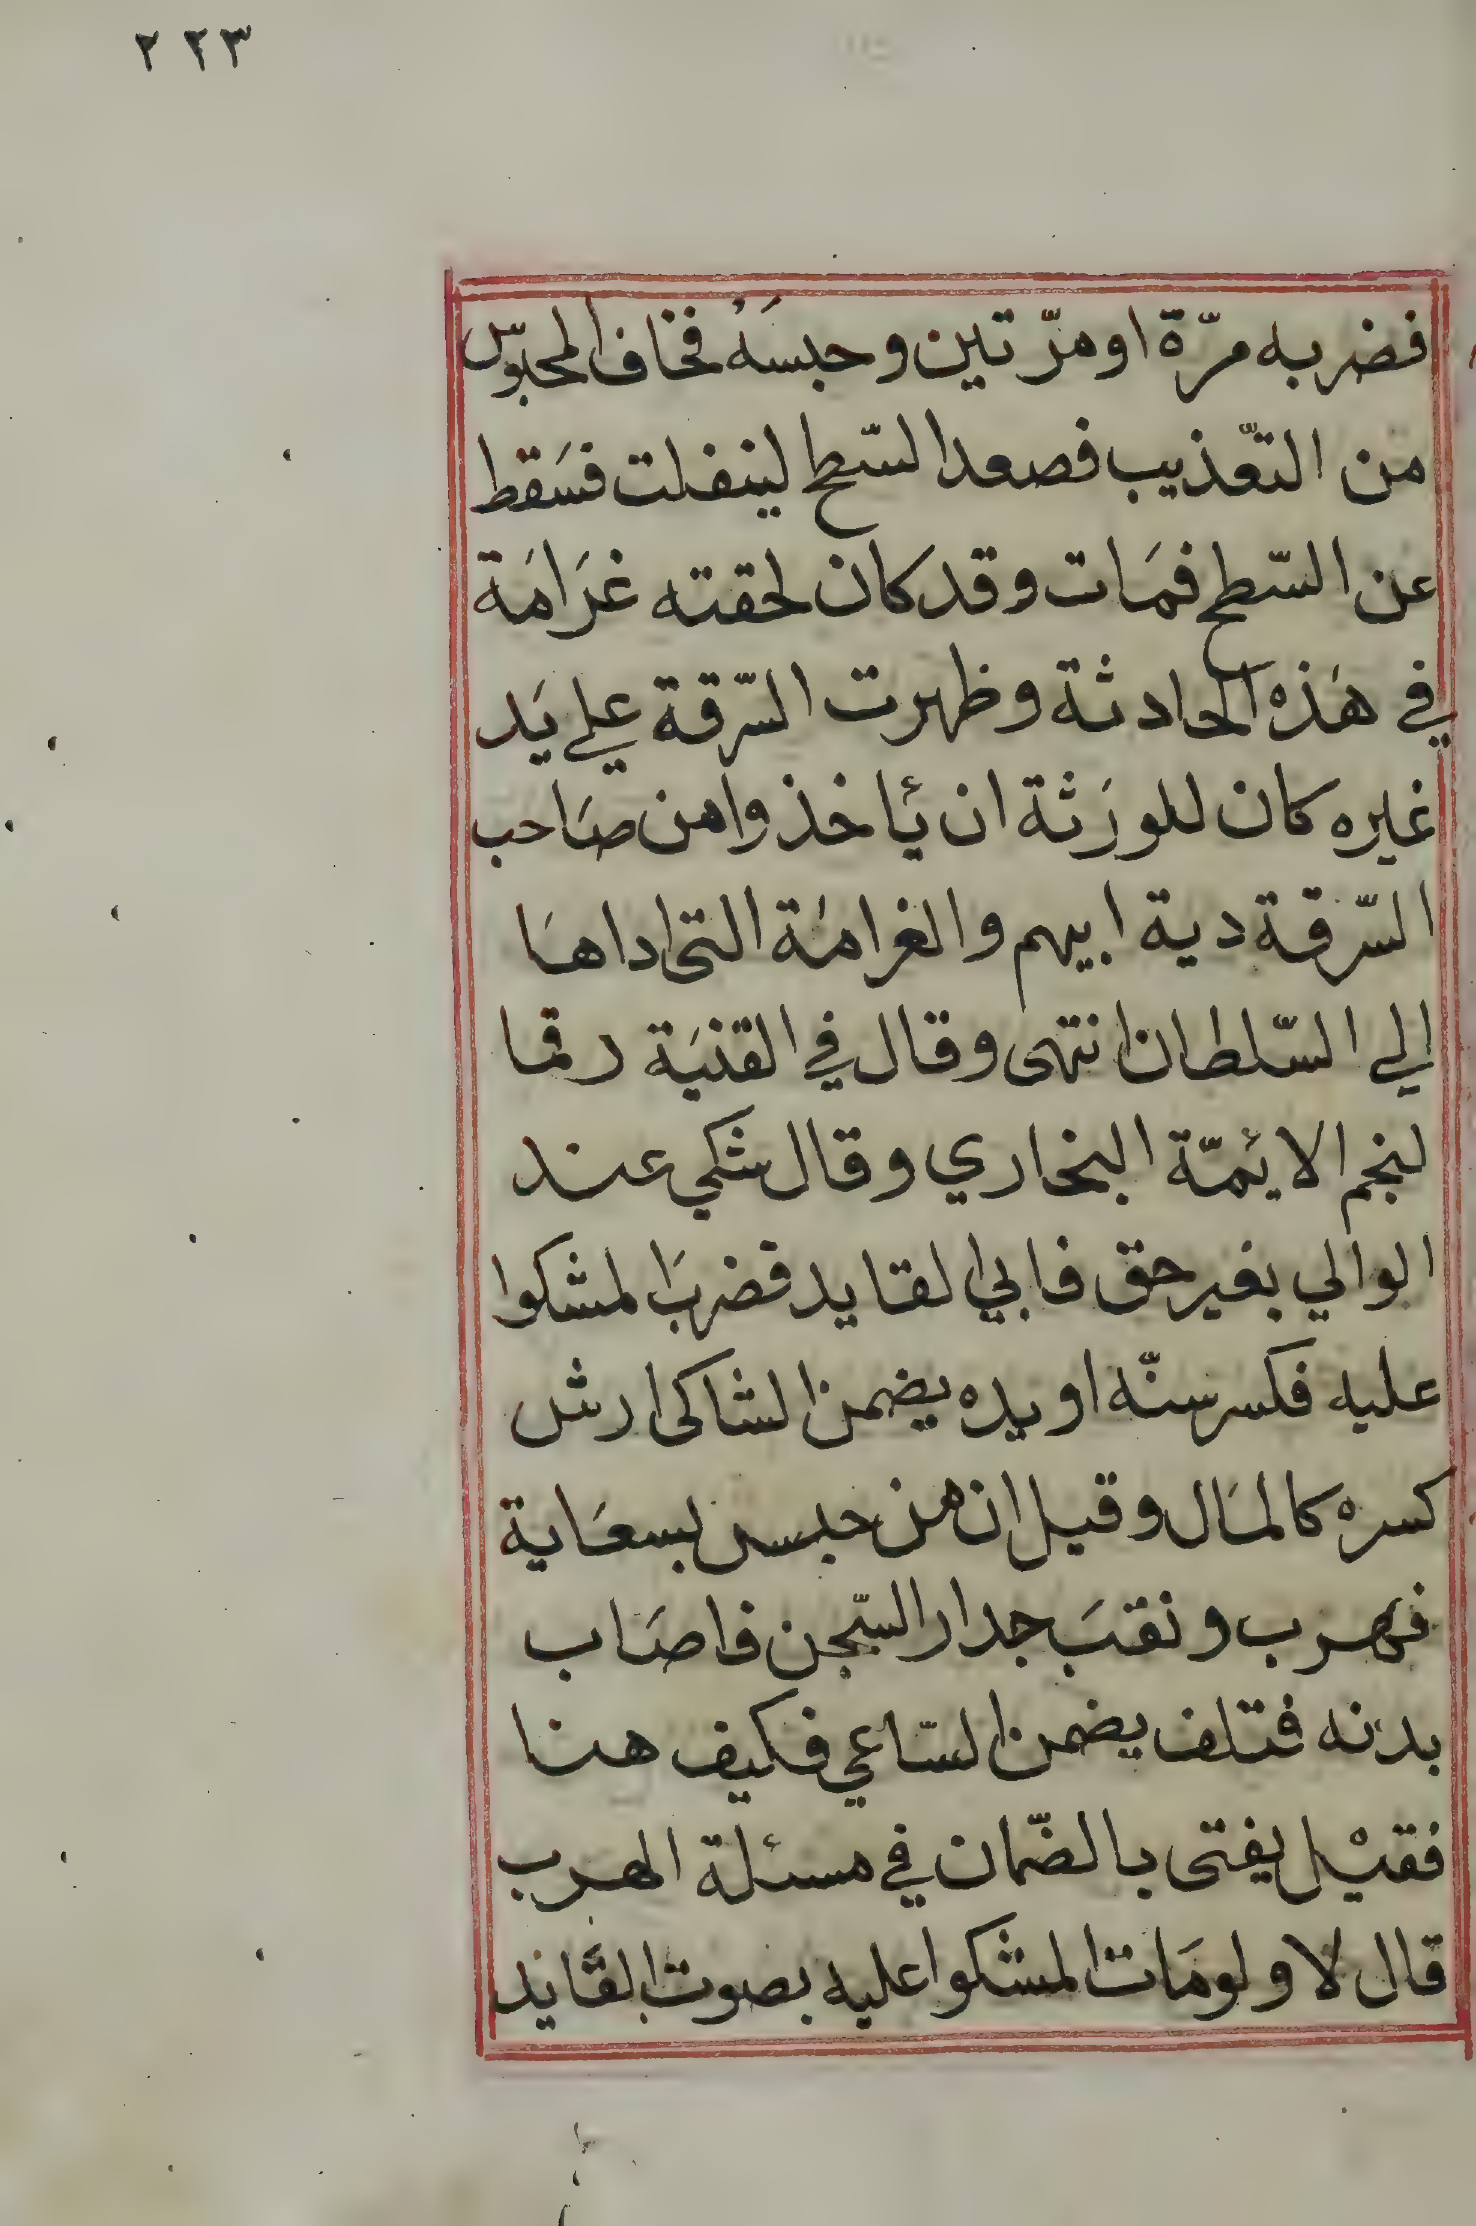 ٢٢٣
فضربه مرّة او مرّتين وحبسَهُ فخاف المحبوّس
من التعّذيب فصعد السّطح لينفلت فسَقط
عن السّطح فمَات وقد كان لحقته غرَامَة
في هَذه الحادثة وظهرت السّرقة علي يَد
غيره كان للورَثة ان ئاخذوا من صَاحب
السّرقة دية ابيهم والغرامَة التي اداهَا
الي السّلطان انتهى وقال في القنيَة رقما
لنجم الائمّة البخاري وقال شكي عند
الوالي بغير حق فابي القايد فضربَ المشكوا
عليه فكسر سنّه او يده يضمن الشاكى ارش
كسره كالمَال وقيل ان من حبس بسعَاية
فهرب ونقبَ جدار السّجن فاصَاب
بدنه فتلف يضمن السّاعي فكيف هنا
فقيْل يفتى بالضّمان في مسئلة الهرب
قال لا ولو مَات المشكوا عليه بصوت القَايد